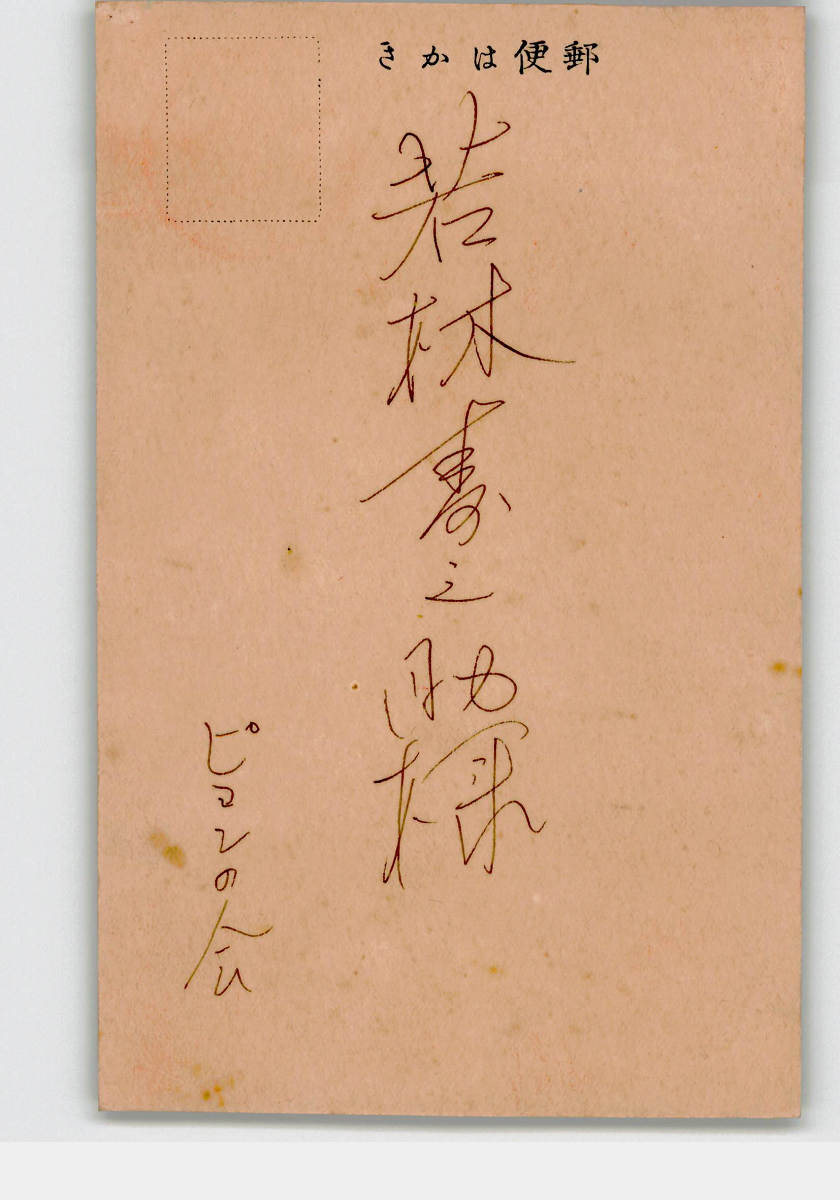 郵便はかき
若林寿之助様
ピヨンの会